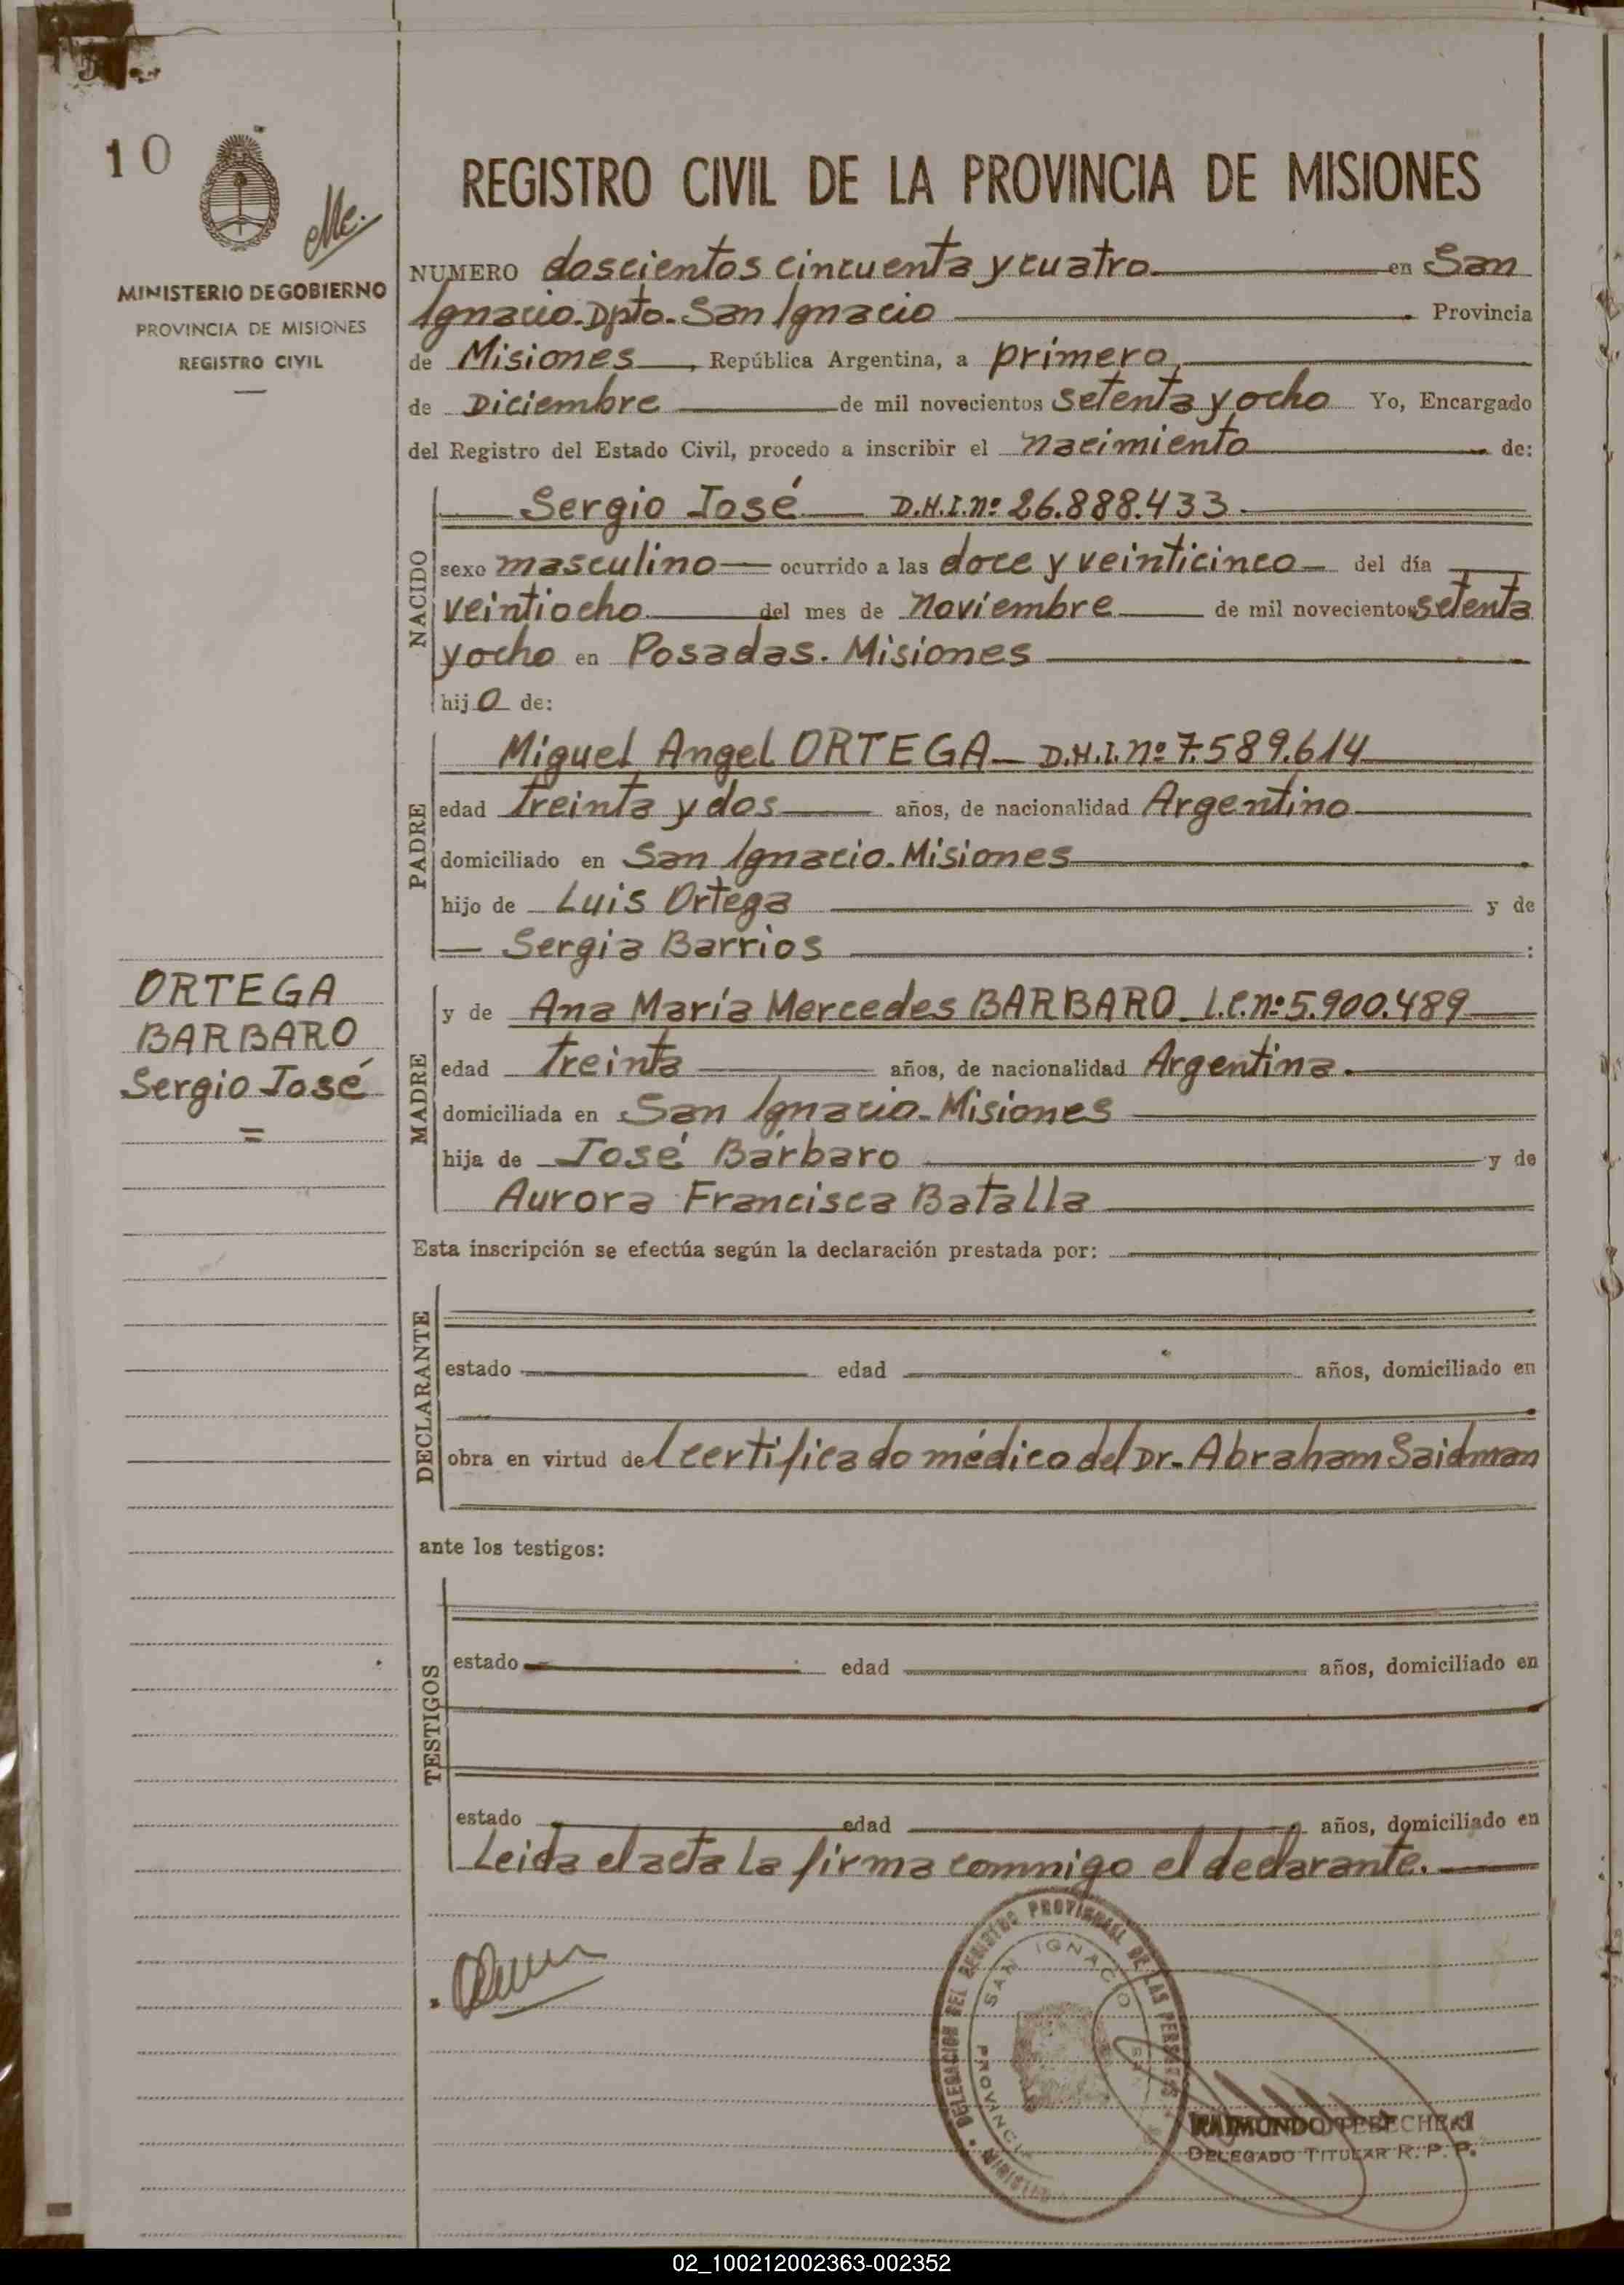 10
MINISTERIO DE GOBIERNO
PROVINCIA DE MISIONES
REGISTRO CIVIL
REGISTRO CIVIL DE LA PROVINCIA DE MISIONES
NUMERO doscientos cincuenta y cuatro en San
Ignacio. Dpto. San Ignacio Provincia
de Misiones, República Argentina, a primero
de Diciembre de mil novecientos setenta y ocho Yo, Encargado
del Registro del Estado Civil, procedo a inscribir el nacimiento de:
NACIDO
Sergio José D.N.I.nº 26.888.433
sexo masculino ocurrido a las doce y veinticinco del día
veintiocho del mes de noviembre de mil novecientos setenta
y ocho en Posadas. Misiones
hijo de:
PADRE
Miguel Angel ORTEGA D.N.I.nº 7.589.614
edad treinta y dos años, de nacionalidad Argentino
domiciliado en San Ignacio. Misiones
hijo de Luis Ortega y de
Sergia Barrios :
ORTEGA
BARBARO
Sergio José
MADRE
y de Ana María Mercedes BARBARO L.C.nº 5.900.489
edad treinta años, de nacionalidad Argentina.
domiciliada en San Ignacio. Misiones
hija de José Bárbaro y de
Aurora Francisca Batalla
Esta inscripción se efectúa según la declaración prestada por:
DECLARANTE
estado edad años, domiciliado en
obra en virtud del certificado médico del Dr. Abraham Saidman
ante los testigos:
TESTIGOS
estado edad años, domiciliado en
estado edad años, domiciliado en
Leida el acta la firma conmigo el declarante.
DELEGACION DEL REGISTRO PROVINCIAL DE LAS PERSONAS
SAN IGNACIO
PROVINCIA
RAIMONDO
DELEGADO TITULAR R. P. P.
02_100212002363-002352